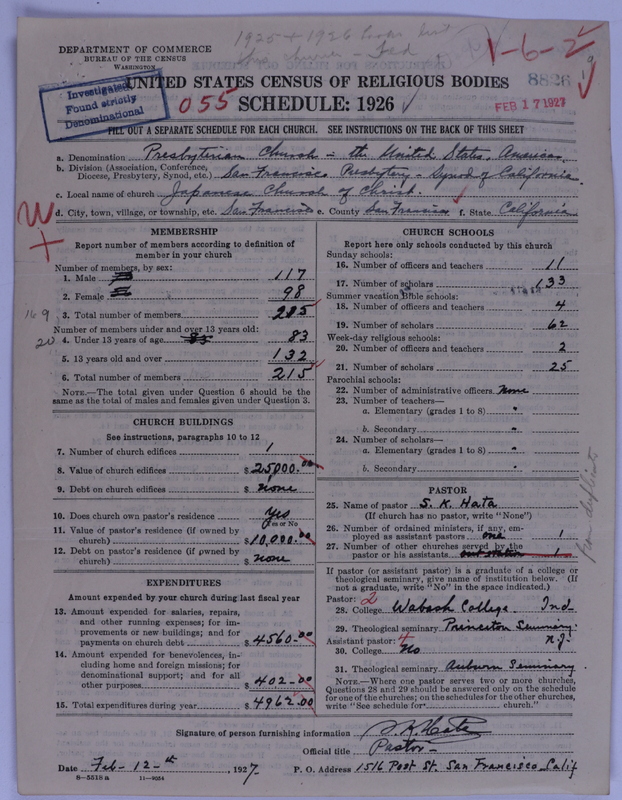 1925 + 1926
1-6-2
DEPARTMENT OF COMMERCE
BUREAU OF THE CENSUS
WASHINGTON
8826
Investigated
Found strictly
Denominational
UNITED STATES CENSUS OF RELIGIOUS BODIES
055 SCHEDULE: 1926
FEB 17 1927
FILL OUT A SEPARATE SCHEDULE FOR EACH CHURCH. SEE INSTRUCTIONS ON THE BACK OF THIS SHEET
a. Denomination Presbyterian Church in the United States, America.
b. Division (Association, Conference, Diocese, Presbytery, Synod, etc.) San Francisco Presbytery - Synod of California
c. Local name of church Japanese Church of Christ.
d. City, town, village, or township, etc. San Francisco e. County San Francisco f. State California
MEMBERSHIP
Report number of members according to definition of
member in your church
Number of members, by sex:
1. Male 117
2. Female 98
3. Total number of members 215
169
Number of members under and over 13 years old:
20
4. Under 13 years of age 83
5. 13 years old and over 132
6. Total number of members 215
NOTE.—The total given under Question 6 should be
same as the total of males and females given under Question 3.
CHURCH BUILDINGS
See instructions, paragraphs 10 to 12
7. Number of church edifices 1
8. Value of church edifices $ 25,000.00
9. Debt on church edifices $ none
10. Does church own pastor's residence Yes
Yes or No
11. Value of pastor's residence (if owned by
church) $ 10,000.00
12. Debt on pastor's residence (if owned by
church) $ none
EXPENDITURES
Amount expended by your church during last fiscal year
13. Amount expended for salaries, repairs,
and other running expenses; for im-
provements or new buildings; and for
payments on church debt $ 4560.00
14. Amount expended for benevolences, in-
cluding home and foreign missions; for
denominational support; and for all
other purposes $ 402-00
15. Total expenditures during year $ 4962.00
CHURCH SCHOOLS
Report here only schools conducted by this church
Sunday schools:
16. Number of officers and teachers 11
17. Number of scholars 133
Summer vacation Bible schools:
18. Number of officers and teachers 4
19. Number of scholars 62
Week-day religious schools:
20. Number of officers and teachers 2
21. Number of scholars 25
Parochial schools:
22. Number of administrative officers none
23. Number of teachers—
a. Elementary (grades 1 to 8) "
b. Secondary "
24. Number of scholars—
a. Elementary (grades 1 to 8) "
b. Secondary "
PASTOR
25. Name of pastor S. K. Hata
(If church has no pastor, write "None")
26. Number of ordained ministers, if any, em-
ployed as assistant pastors one 1
27. Number of other churches served by the
pastor or his assistants 1
If pastor (or assistant pastor) is a graduate of a college or
theological seminary, give name of institution below. (If
not a graduate, write "No" in the space indicated.)
Pastor: 2
28. College Wabash College. Ind
29. Theological seminary Princeton Seminary.
N.J.
Assistant pastor: 4
30. College No
31. Theological seminary Auburn Seminary.
NOTE.—Where one pastor serves two or more churches,
Questions 28 and 29 should be answered only on the schedule
for one of the churches; on the schedules for the other churches,
write "See schedule for church."
Signature of person furnishing information S. K. Hata
Official title Pastor-
Date Feb-12-th, 1927. P. O. Address 1516 Post St. San Francisco, Calif
8-5518 a 11-9054